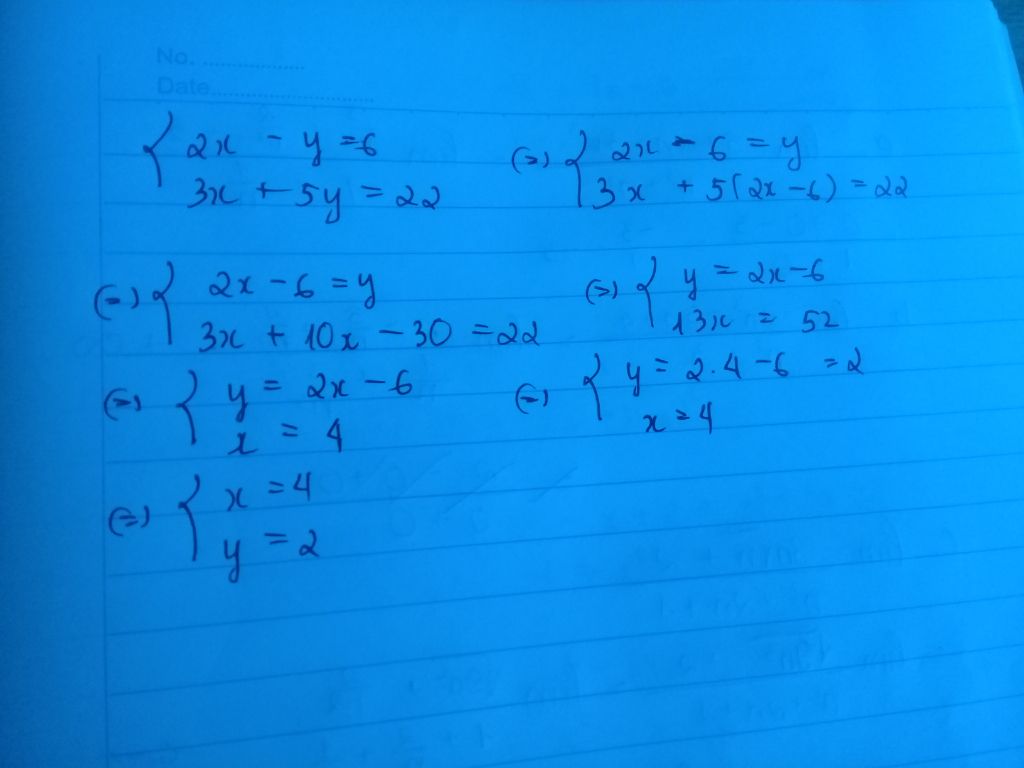 No. ..................
Date..............................
{ 2x - y = 6
3x + 5y = 22
(=) { 2x - 6 = y
3x + 5(2x - 6) = 22
(=) { 2x - 6 = y
3x + 10x - 30 = 22
(=) { y = 2x - 6
13x = 52
(=) { y = 2x - 6
x = 4
(=) { y = 2.4 - 6 = 2
x = 4
(=) { x = 4
y = 2